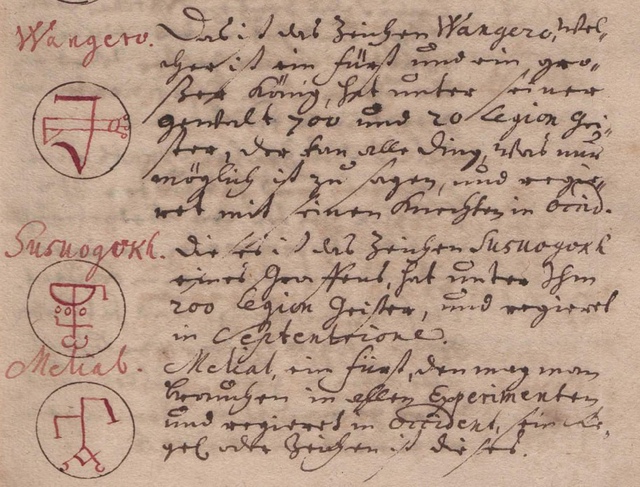 Wangero.
Das ist das Zeichen Wangero, wel-
cher ist ein fürst und ein gro-
ßer König, hat unter seiner
gewalt 700 und 20 Legion Gei-
ster, der kan alle ding, was nur
möglich ist zu sagen, und regie-
ret mit seinen Knechten in Occid.
Susuogokh.
Die es ist das Zeichen Susuogokh
eines Graffens, hat unter Ihm
200 Legion Geister, und regieret
in Septentrione.
Mehal.
Mehal, ein fürst, den mag man
brauchen in allen Experimenten
und regieret in Occident, sein Si-
gel oder Zeichen ist dieses.